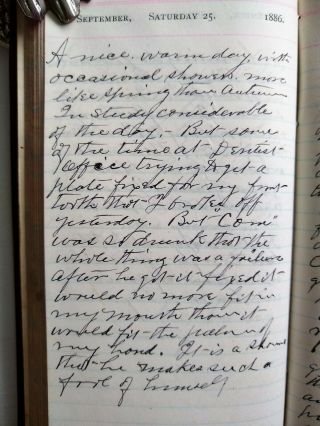 September, Saturday 25. 1886.
A nice warm day, with
occasional showers more
like spring than Autumn
In study considerable
of the day. But some
of the time at Dentist
office trying to get a
plate fixed for my front
tooth that I broke off
yesterday. But "Com"
was so drunk that the
whole thing was a failure
after he got it fixed it
would no more fit in
my mouth than it
would fit the palm of
my hand. It is a shame
that he makes such a
fool of himself